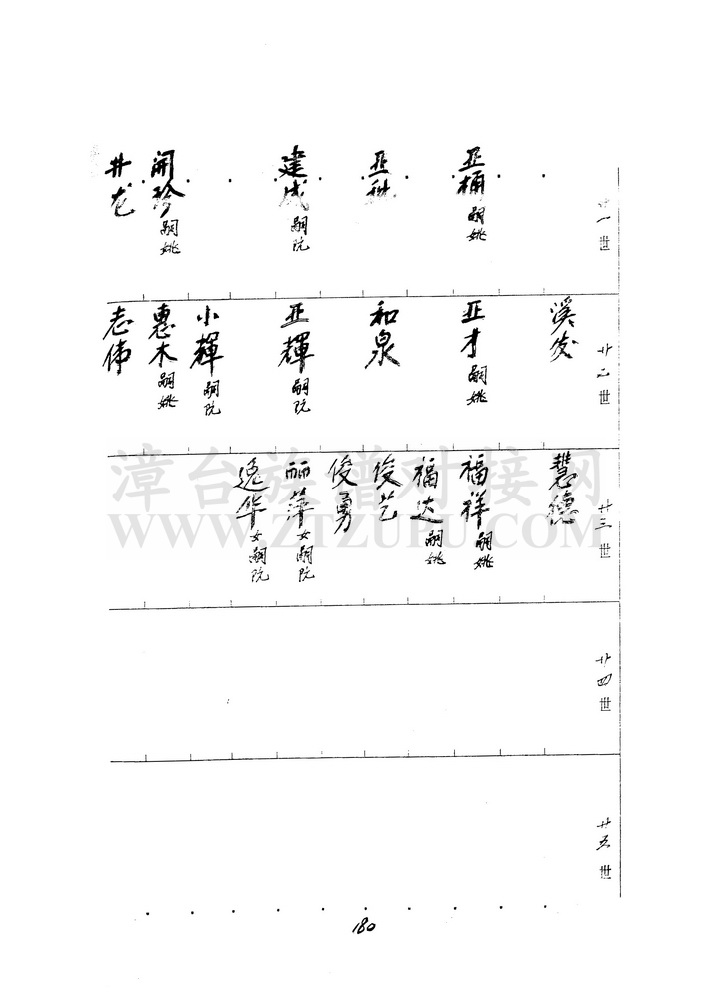 廿一世
亚桶 嗣姚
亚
建成 嗣阮
開珍 嗣姚
井龙
廿二世
溪发
亚才 嗣姚
和泉
亚輝 嗣阮
小輝 嗣阮
惠木 嗣姚
志伟
廿三世
慧德
福祥 嗣姚
福达 嗣姚
俊艺
俊勇
丽萍 女嗣阮
逸华 女嗣阮
廿四世
廿五世
180
漳台族谱对接网
WWW.ZTZUPU.COM